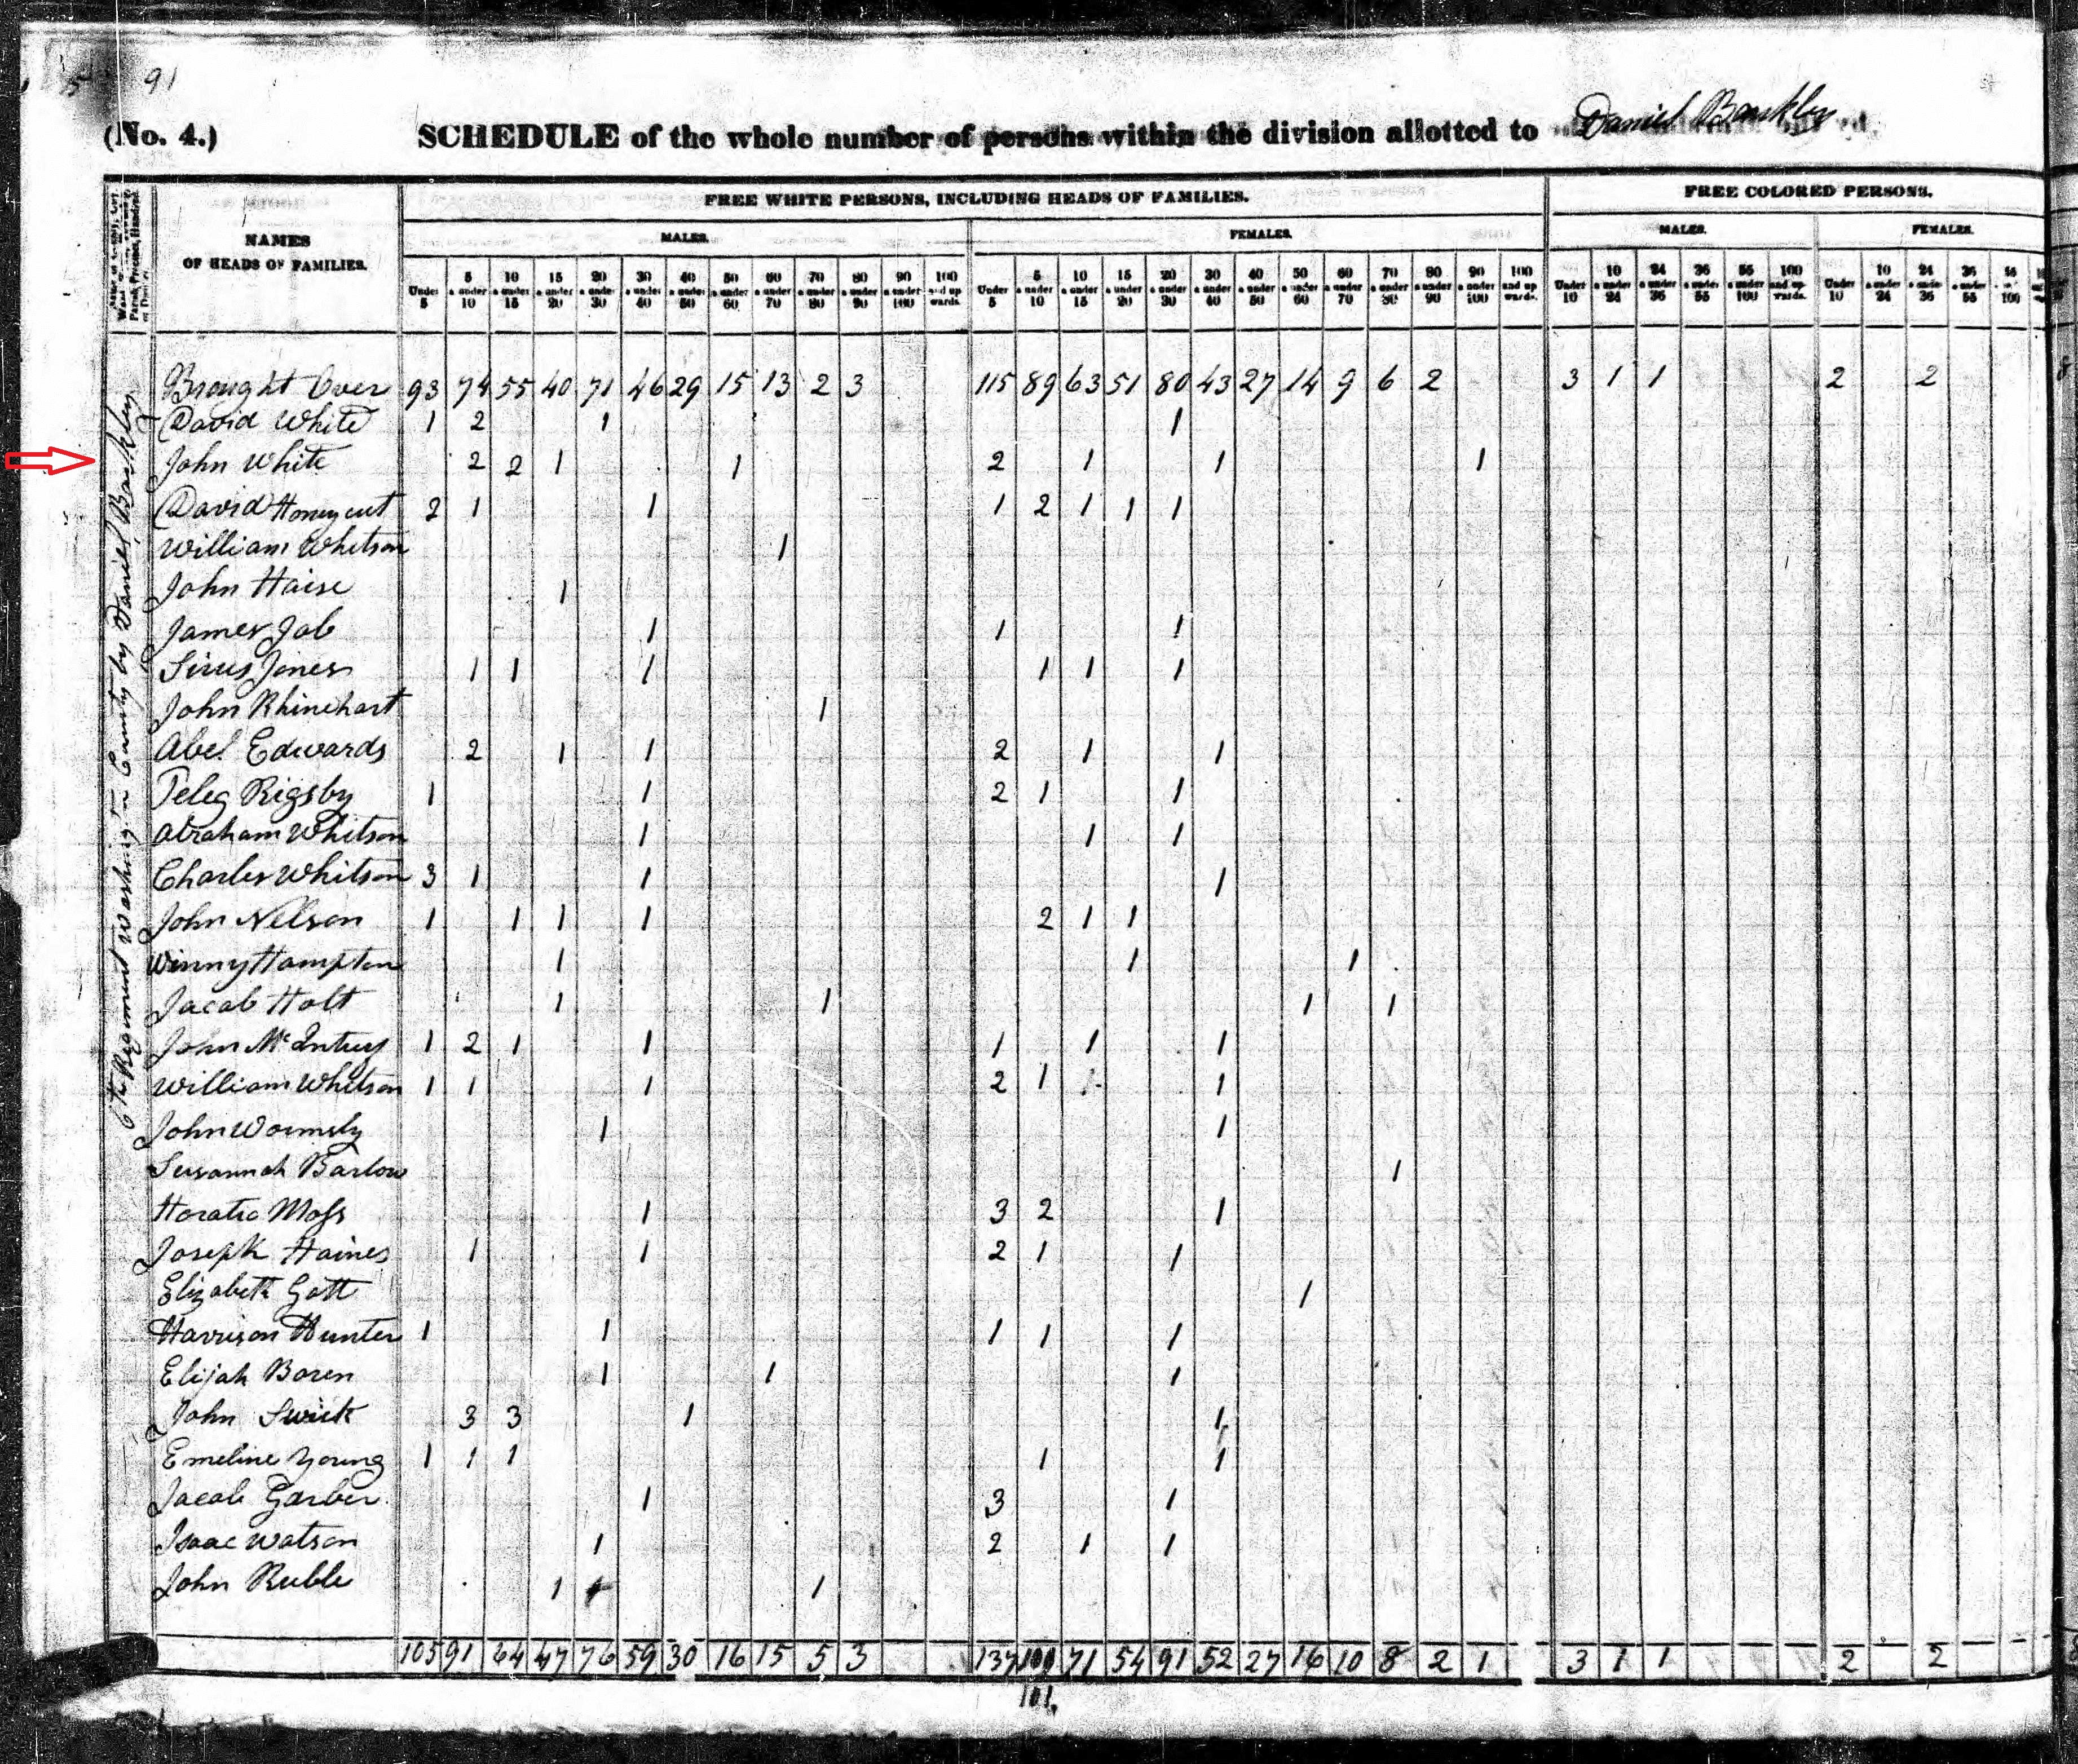 91
(No. 4.) SCHEDULE of the whole number of persons within the division allotted to Daniel Barkley
FREE WHITE PERSONS, INCLUDING HEADS OF FAMILIES. FREE COLORED PERSONS.
NAMES OF HEADS OF FAMILIES. MALES. FEMALES. MALES. FEMALES.
5 10 15 20 30 40 50 60 70 80 90 100 5 10 15 20 30 40 50 60 70 80 90 100 10 24 36 55 100 10 24 36 55
Under & under & under & under & under & under & under & under & under & under & under & under and up Under & under & under & under & under & under & under & under & under & under & under & under and up Under & under & under & under & under and up Under & under & under & under
5 10 15 20 30 40 50 60 70 80 90 100 wards. 5 10 15 20 30 40 50 60 70 80 90 100 wards. 10 24 36 55 100 wards. 10 24 36 55 100
6th Regiment Washington County by Daniel Barkley
Brought Over 93 74 55 40 71 46 29 15 13 2 3 115 89 63 51 80 43 27 14 9 6 2 3 1 1 2 2
David White 1 2 1 1
John White 2 2 1 1 2 1 1 1
David Honeycut 2 1 1 1 2 1 1 1
William Whitson 1
John Haise 1
James Job 1 1 1
Sirus Jones 1 1 1 1 1 1
John Rhinehart 1
Abel Edwards 2 1 1 2 1 1
Peleg Rigsby 1 1 2 1 1
Abraham Whitson 1 1 1
Charles Whitson 3 1 1 1
John Nelson 1 1 1 1 2 1 1
Winny Hampton 1 1 1
Jacob Holt 1 1 1 1
John McIntury 1 2 1 1 1 1 1
William Whitson 1 1 1 2 1 1
John Wormsly 1 1
Susannah Barlow 1
Horatio Moss 1 3 2 1
Joseph Haines 1 1 2 1 1
Elizabeth Gott 1
Harrison Hunter 1 1 1 1 1
Elijah Boren 1 1 1
John Swick 3 3 1 1
Emeline Young 1 1 1 1 1
Jacob Garber 1 3 1
Isaac Watson 1 2 1 1
John Ruble 1 1
105 91 64 47 76 59 30 16 15 5 3 137 101 71 54 91 52 27 16 10 8 2 1 3 1 1 2 2
101